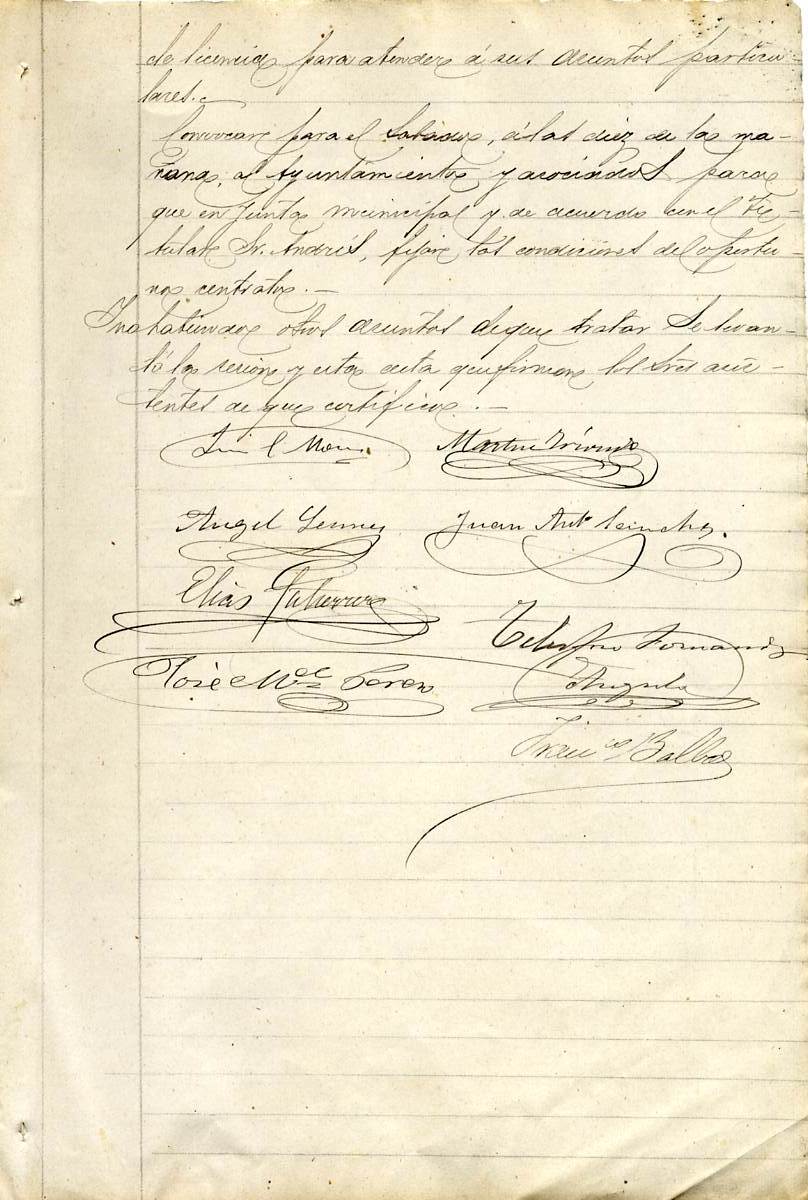 de licencia para atender á sus asuntos particu-
lares.-
Convocar para el Sabado, á las diez de la ma-
ñana, al Ayuntamiento y asociados para
que en Junta municipal y de acuerdo con el Ti-
tular Sr. Andrés, fijar las condiciones del oportu-
no contrato.-
Y no habiendo otros asuntos de que tratar se levan-
tó la sesion y esta acta que firman los Sres asis-
tentes de que certifico.-
Martin
Angel Juan Antº Sanchez.
Elias Gutierrez
Telesforo Fernandez
José Mª Perez
Franco Balboa